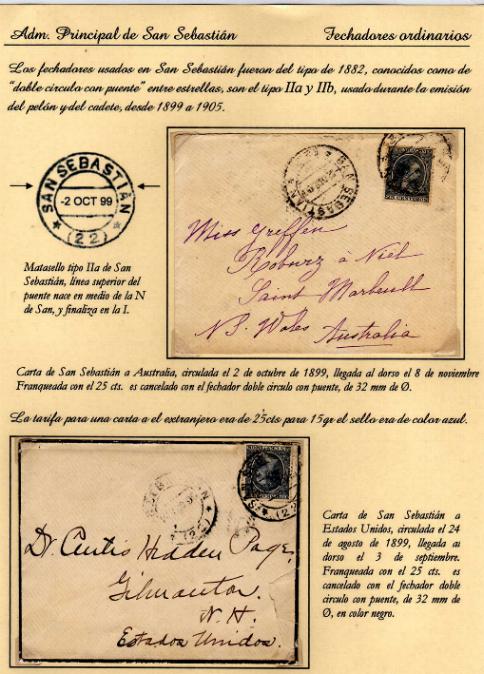 Adm. Principal de San Sebastián
Fechadores ordinarios
Los fechadores usados en San Sebastián fueron del tipo de 1882, conocidos como de
"doble circulo con puente" entre estrellas, son el tipo IIa y IIb, usado durante la emisión
del pelón y del cadete, desde 1899 a 1905.
SAN SEBASTIÁN
-2 OCT 99
(22)
Matasello tipo IIa de San
Sebastián, línea superior del
puente nace en medio de la N
de San, y finaliza en la I.
SAN SEBASTIAN
Miss Greffen
à Niel
Saint
N. S. Wales Australia
Carta de San Sebastián a Australia, circulada el 2 de octubre de 1899, llegada al dorso el 8 de noviembre
Franqueada con el 25 cts. es cancelado con el fechador doble circulo con puente, de 32 mm de Ø.
La tarifa para una carta a el extranjero era de 25cts para 15gr el sello era de color azul.
(22)
Dr. Curtis Page,
Gilmanton.
N. H.
Estados Unidos.
Carta de San Sebastián a
Estados Unidos, circulada el 24
de agosto de 1899, llegada ai
dorso el 3 de septiembre.
Franqueada con el 25 cts. es
cancelado con el fechador doble
circulo con puente, de 32 mm de
Ø, en color negro.